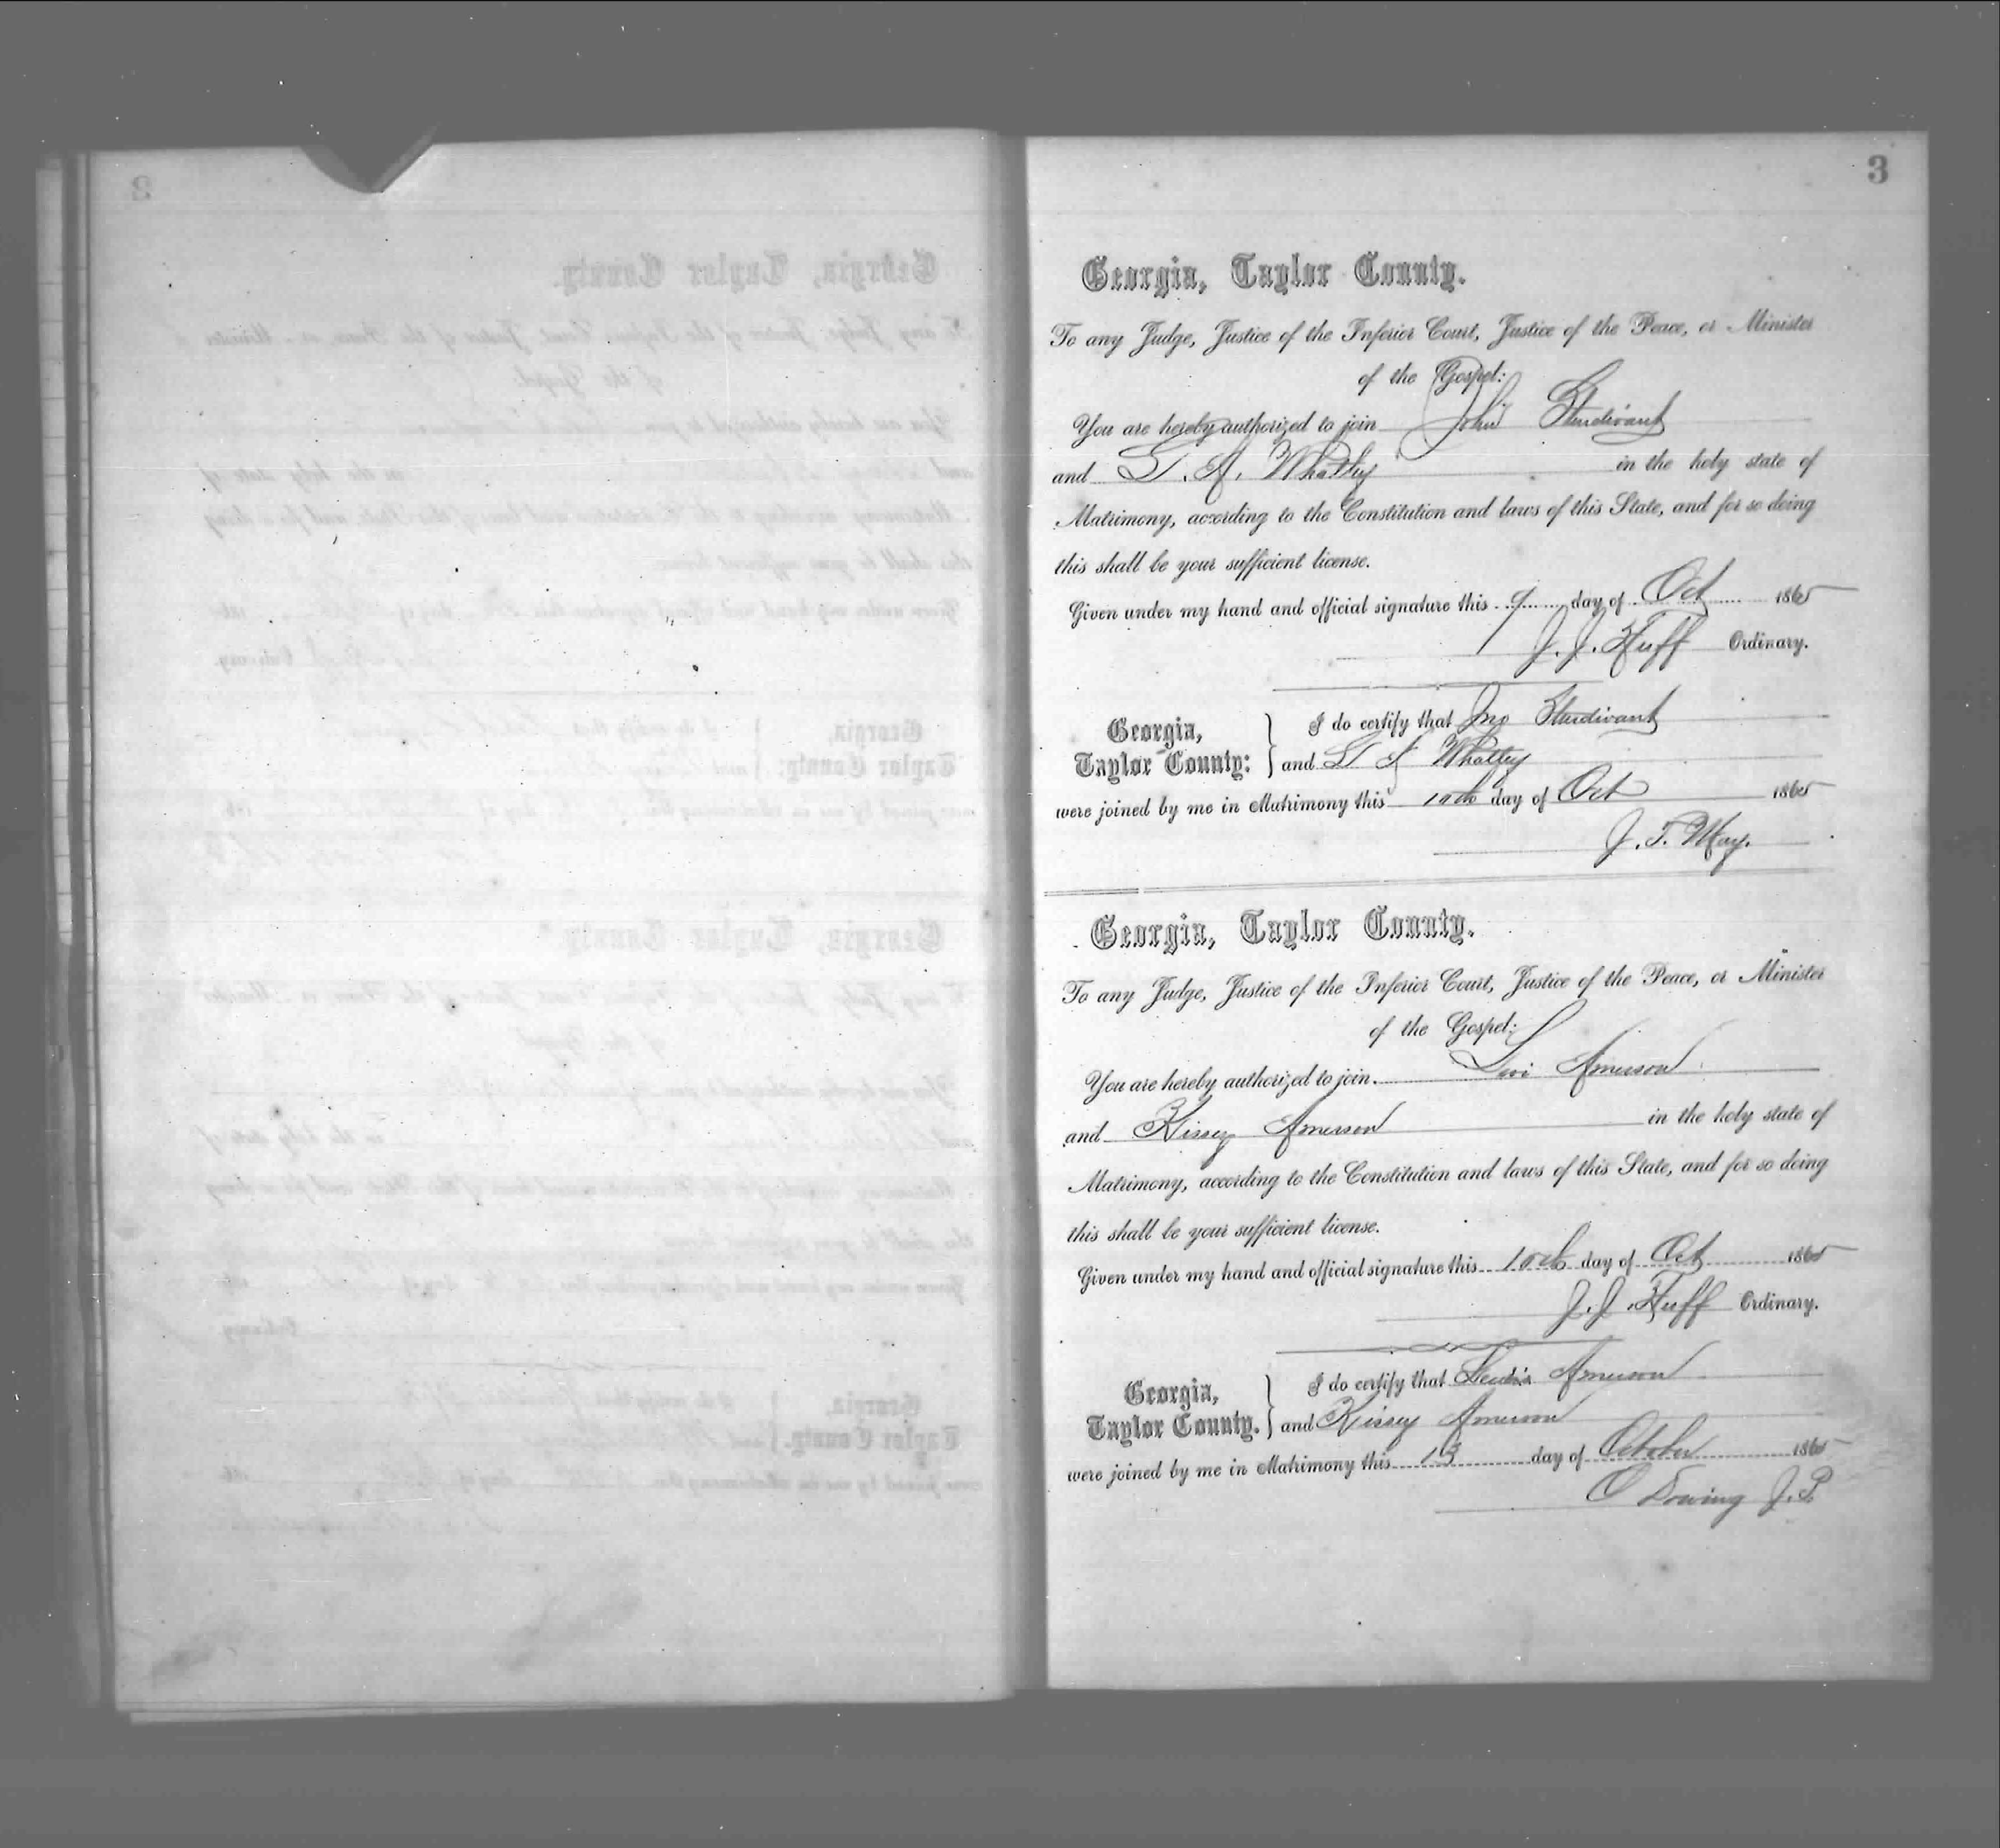 3
Georgia, Taylor County.
To any Judge, Justice of the Inferior Court, Justice of the Peace, or Minister
of the Gospel:
You are hereby authorized to join John Sturdivant
and A. Whatley in the holy state of
Matrimony, according to the Constitution and laws of this State, and for so doing
this shall be your sufficient license.
Given under my hand and official signature this 9 day of Oct 1865
J. J. Huff Ordinary.
Georgia,
Taylor County:
I do certify that Jno Sturdivant
and Whatley
were joined by me in Matrimony this 10th day of Oct 1865
J. T. May.
Georgia, Taylor County.
To any Judge, Justice of the Inferior Court, Justice of the Peace, or Minister
of the Gospel:
You are hereby authorized to join Levi Amerson
and Kissey Amerson in the holy state of
Matrimony, according to the Constitution and laws of this State, and for so doing
this shall be your sufficient license.
Given under my hand and official signature this 10th day of Oct 1865
J. J. Huff Ordinary.
Georgia,
Taylor County.
I do certify that Amerson
and Kissey Amerson
were joined by me in Matrimony this 13 day of October 1865
O J. P.